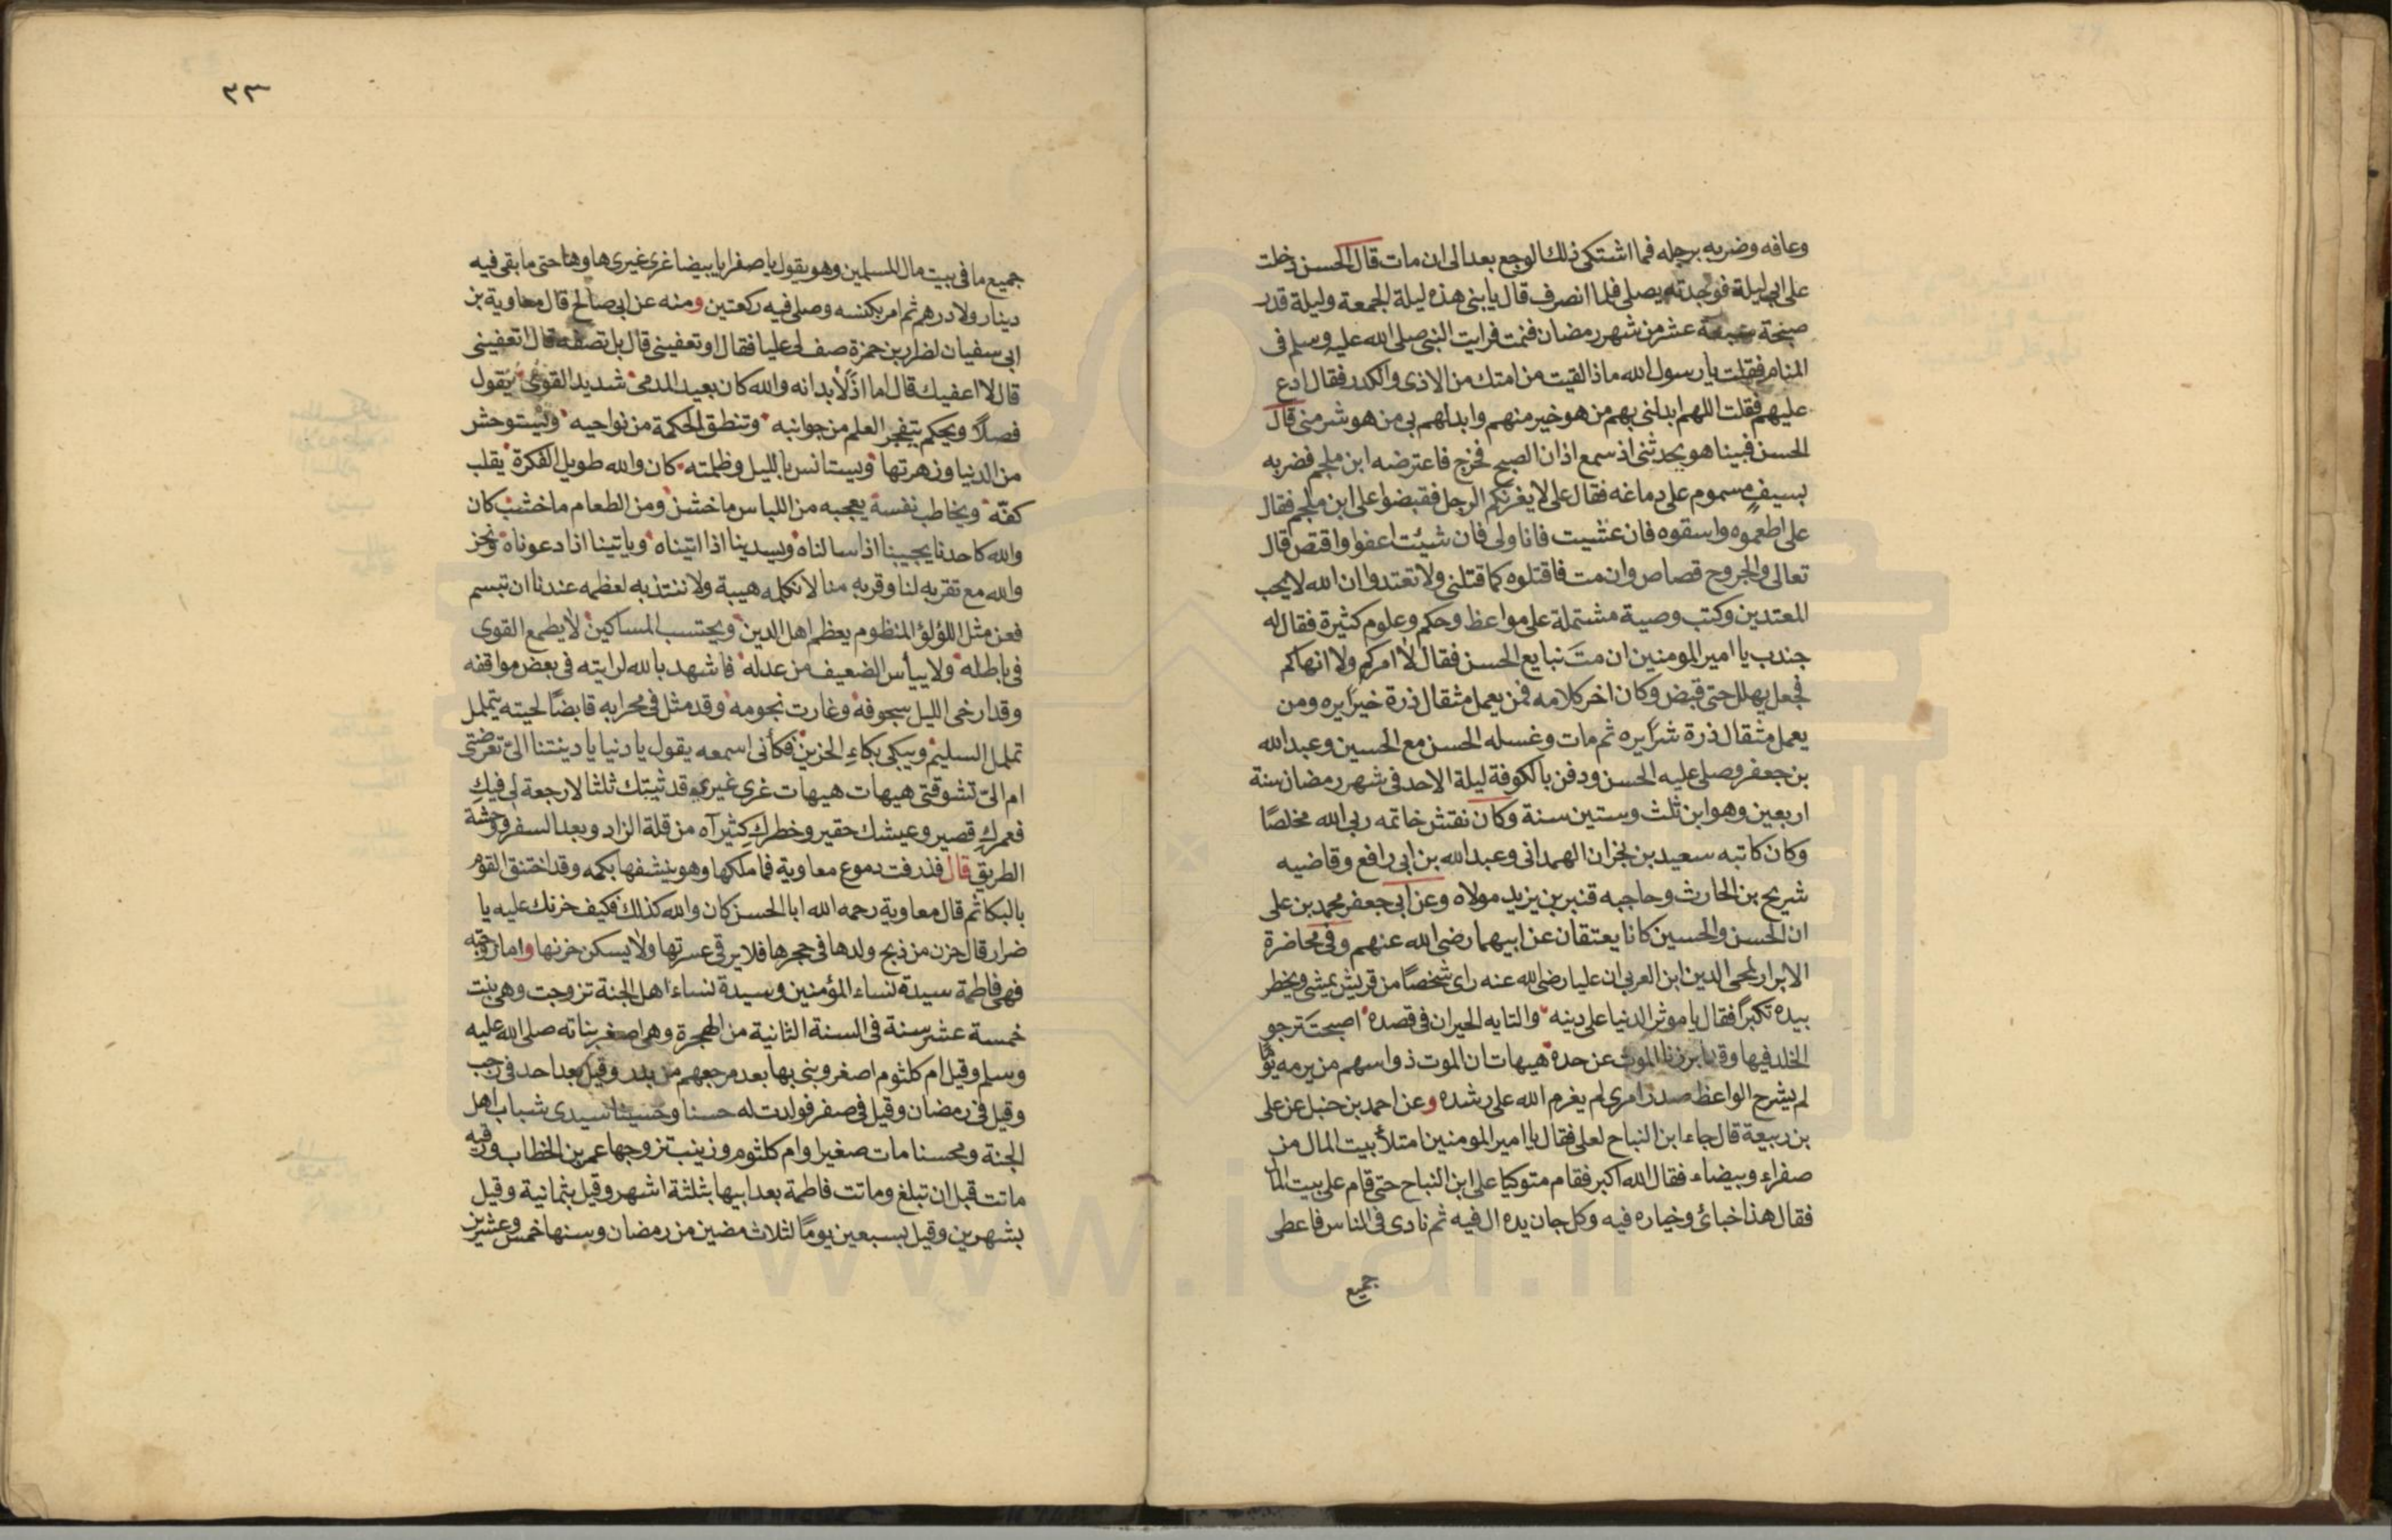 وعافه وضربه برجله فما اشتكى ذلك الوجع بعد الى ان مات قال الحسن دخلت
على ابى ليلة فوجدته يصلى فلما انصرف قال يا بنى هذه ليلة الجمعة وليلة قدر
صبحة عشر من شهر رمضان فنمت فرايت النبى صلى الله عليه وسلم فى
المنام فقلت يا رسول الله ماذا لقيت من امتك من الاذى والكدر فقال ادع
عليهم فقلت اللهم ابدلنى بهم من هو خير منهم وابدلهم بى من هو شر منى قال
الحسن فبينا هو يحدثنى اذ سمع اذان الصبح فخرج فاعترضه ابن ملجم فضربه
بسيف مسموم على دماغه فقال على لا يغرنكم الرجل فقبضوا على ابن ملجم فقال
على اطعموه واسقوه فان عشيت فانا ولى فان شيئت اعفوا واقتص قال
تعالى والجروح قصاص وان مت فاقتلوه كما قتلنى ولا تعتدوا ان الله لا يحب
المعتدين وكتب وصية مشتملة على مواعظ وحكم وعلوم كثيرة فقال له
جندب يا امير المومنين ان متَ نبايع الحسن فقال لا امركم ولا انهاكم
فجعل يهلل حتى قبض وكان اخر كلامه فمن يعمل مثقال ذرة خيرا يره ومن
يعمل مثقال ذرة شرا يره ثم مات وغسله الحسن مع الحسين وعبد الله
بن جعفر وصلى عليه الحسن ودفن بالكوفة ليلة الاحد فى شهر رمضان سنة
اربعين وهو ابن ثلث وستين سنة وكان نقش خاتمه ربى الله مخلصًا
وكان كاتبه سعيد بن نجران الهمدانى وعبد الله بن ابى رافع وقاضيه
شريح بن الحارث وحاجبه قنبر بن يزيد مولاه وعن ابى جعفر محمد بن على
ان الحسن والحسين كانا يعتقان عن ابيهما رضى الله عنهم وفى محاضرة
الابرار لمحى الدين ابن العربى ان عليا رضى الله عنه راى شخصًا من قريش يمشى ويخطر
بيده تكبرًا فقال يا موثر الدنيا على دينه والتايه الحيران فى قصده اصبحت ترجو
الخلد فيها وقد ابرز ناب الموت عن حده هيهات ان الموت ذو اسهم من يرمه يومًا
لم يشرح الواعظ صدر امرى لم يغرم الله على رشده وعن احمد بن حنبل عن على
بن ربيعة قال جاء ابن النباح لعلى فقال يا امير المومنين امتلأ بيت المال من
صفراء وبيضاء فقال الله اكبر فقام متوكيا على ابن النباح حتى قام على بيت المال
فقال هذا خبائى وخياره فيه وكل جان يده ال فيه ثم نادى فى الناس فاعطى
جميع
٣٣
جميع ما فى بيت مال المسلمين وهو يقول يا صفرا يا بيضا غرى غيرى ها وها حتى ما بقى فيه
دينار ولا درهم ثم امر بكنسه وصلى فيه ركعتين ومنه عن ابى صالح قال معاوية بن
ابى سفيان لضرار بن حمزة صف لى عليا فقال او تعفينى قال بل تصفه قال اتعفينى
قال لا اعفيك قال اما اذًا لابد انه والله كان بعيد المدى شديد القوى يقول
فصلاً ويحكم يتفجر العلم من جوانبه وتنطق الحكمة من نواحيه ويستوحش
من الدنيا وزهرتها ويستانس بالليل وظلمته كان والله طويل الفكرة يقلب
كفّه ويخاطب نفسه يعجبه من اللباس ما خشن ومن الطعام ما خشب كان
والله كاحدنا يجيبنا اذا سالناه ويبدينا اذا اتيناه وياتينا اذا دعوناه ونحن
والله مع تقربه لنا وقربه منا لا نكلمه هيبة ولا نبتديه لعظمه عندنا ان تبسم
فعن مثل اللؤلؤ المنظوم يعظم اهل الدين ويحتسب المساكين لا يطمع القوى
فى باطله ولا ييأس الضعيف من عدله فاشهد بالله لرايته فى بعض مواقفه
وقد ارخى الليل سجوفه وغارت نجومه وقد مثل فى محرابه قابضًا لحيته يتململ
تململ السليم ويبكى بكاء الحزين فكأنى اسمعه يقول يا دنيا يا دينتنا الىّ تعرضتى
ام الىّ تشوقتى هيهات هيهات غرى غيرى قد ثبتك ثلثا لا رجعة لى فيكِ
فعمركِ قصير وعيشك حقير وخطركِ كثير آه من قلة الزاد وبعد السفر ووحشة
الطريق قال فذرفت دموع معاوية فما ملكها وهو ينشفها بكمه وقد اختنق القوم
بالبكا ثم قال معاوية رحمه الله ابا الحسن كان والله كذلك فكيف حزنك عليه يا
ضرار قال حزن من ذبح ولدها فى حجرها فلا يرقى عسرتها ولا يسكن حزنها واما زوجته
فهى فاطمة سيدة نساء المؤمنين وسيدة نساء اهل الجنة تزوجت وهى بنت
خمسة عشر سنة فى السنة الثانية من الهجرة وهى اصغر بناته صلى الله عليه
وسلم وقيل ام كلثوم اصغر وبنى بها بعد مرجعهم من بدر وقيل بعد احد فى رجب
وقيل فى رمضان وقيل فى صفر فولدت له حسنا وحسينا سيدى شباب اهل
الجنة ومحسنا مات صغيرا وام كلثوم وزينب تزوجها عمر بن الخطاب ورقيه
ماتت قبل ان تبلغ وماتت فاطمة بعد ابيها بثلثة اشهر وقيل بثمانية وقيل
بشهرين وقيل بسبعين يومًا لثلاث مضين من رمضان وسنها خمس وعشرين
www.ical.ir